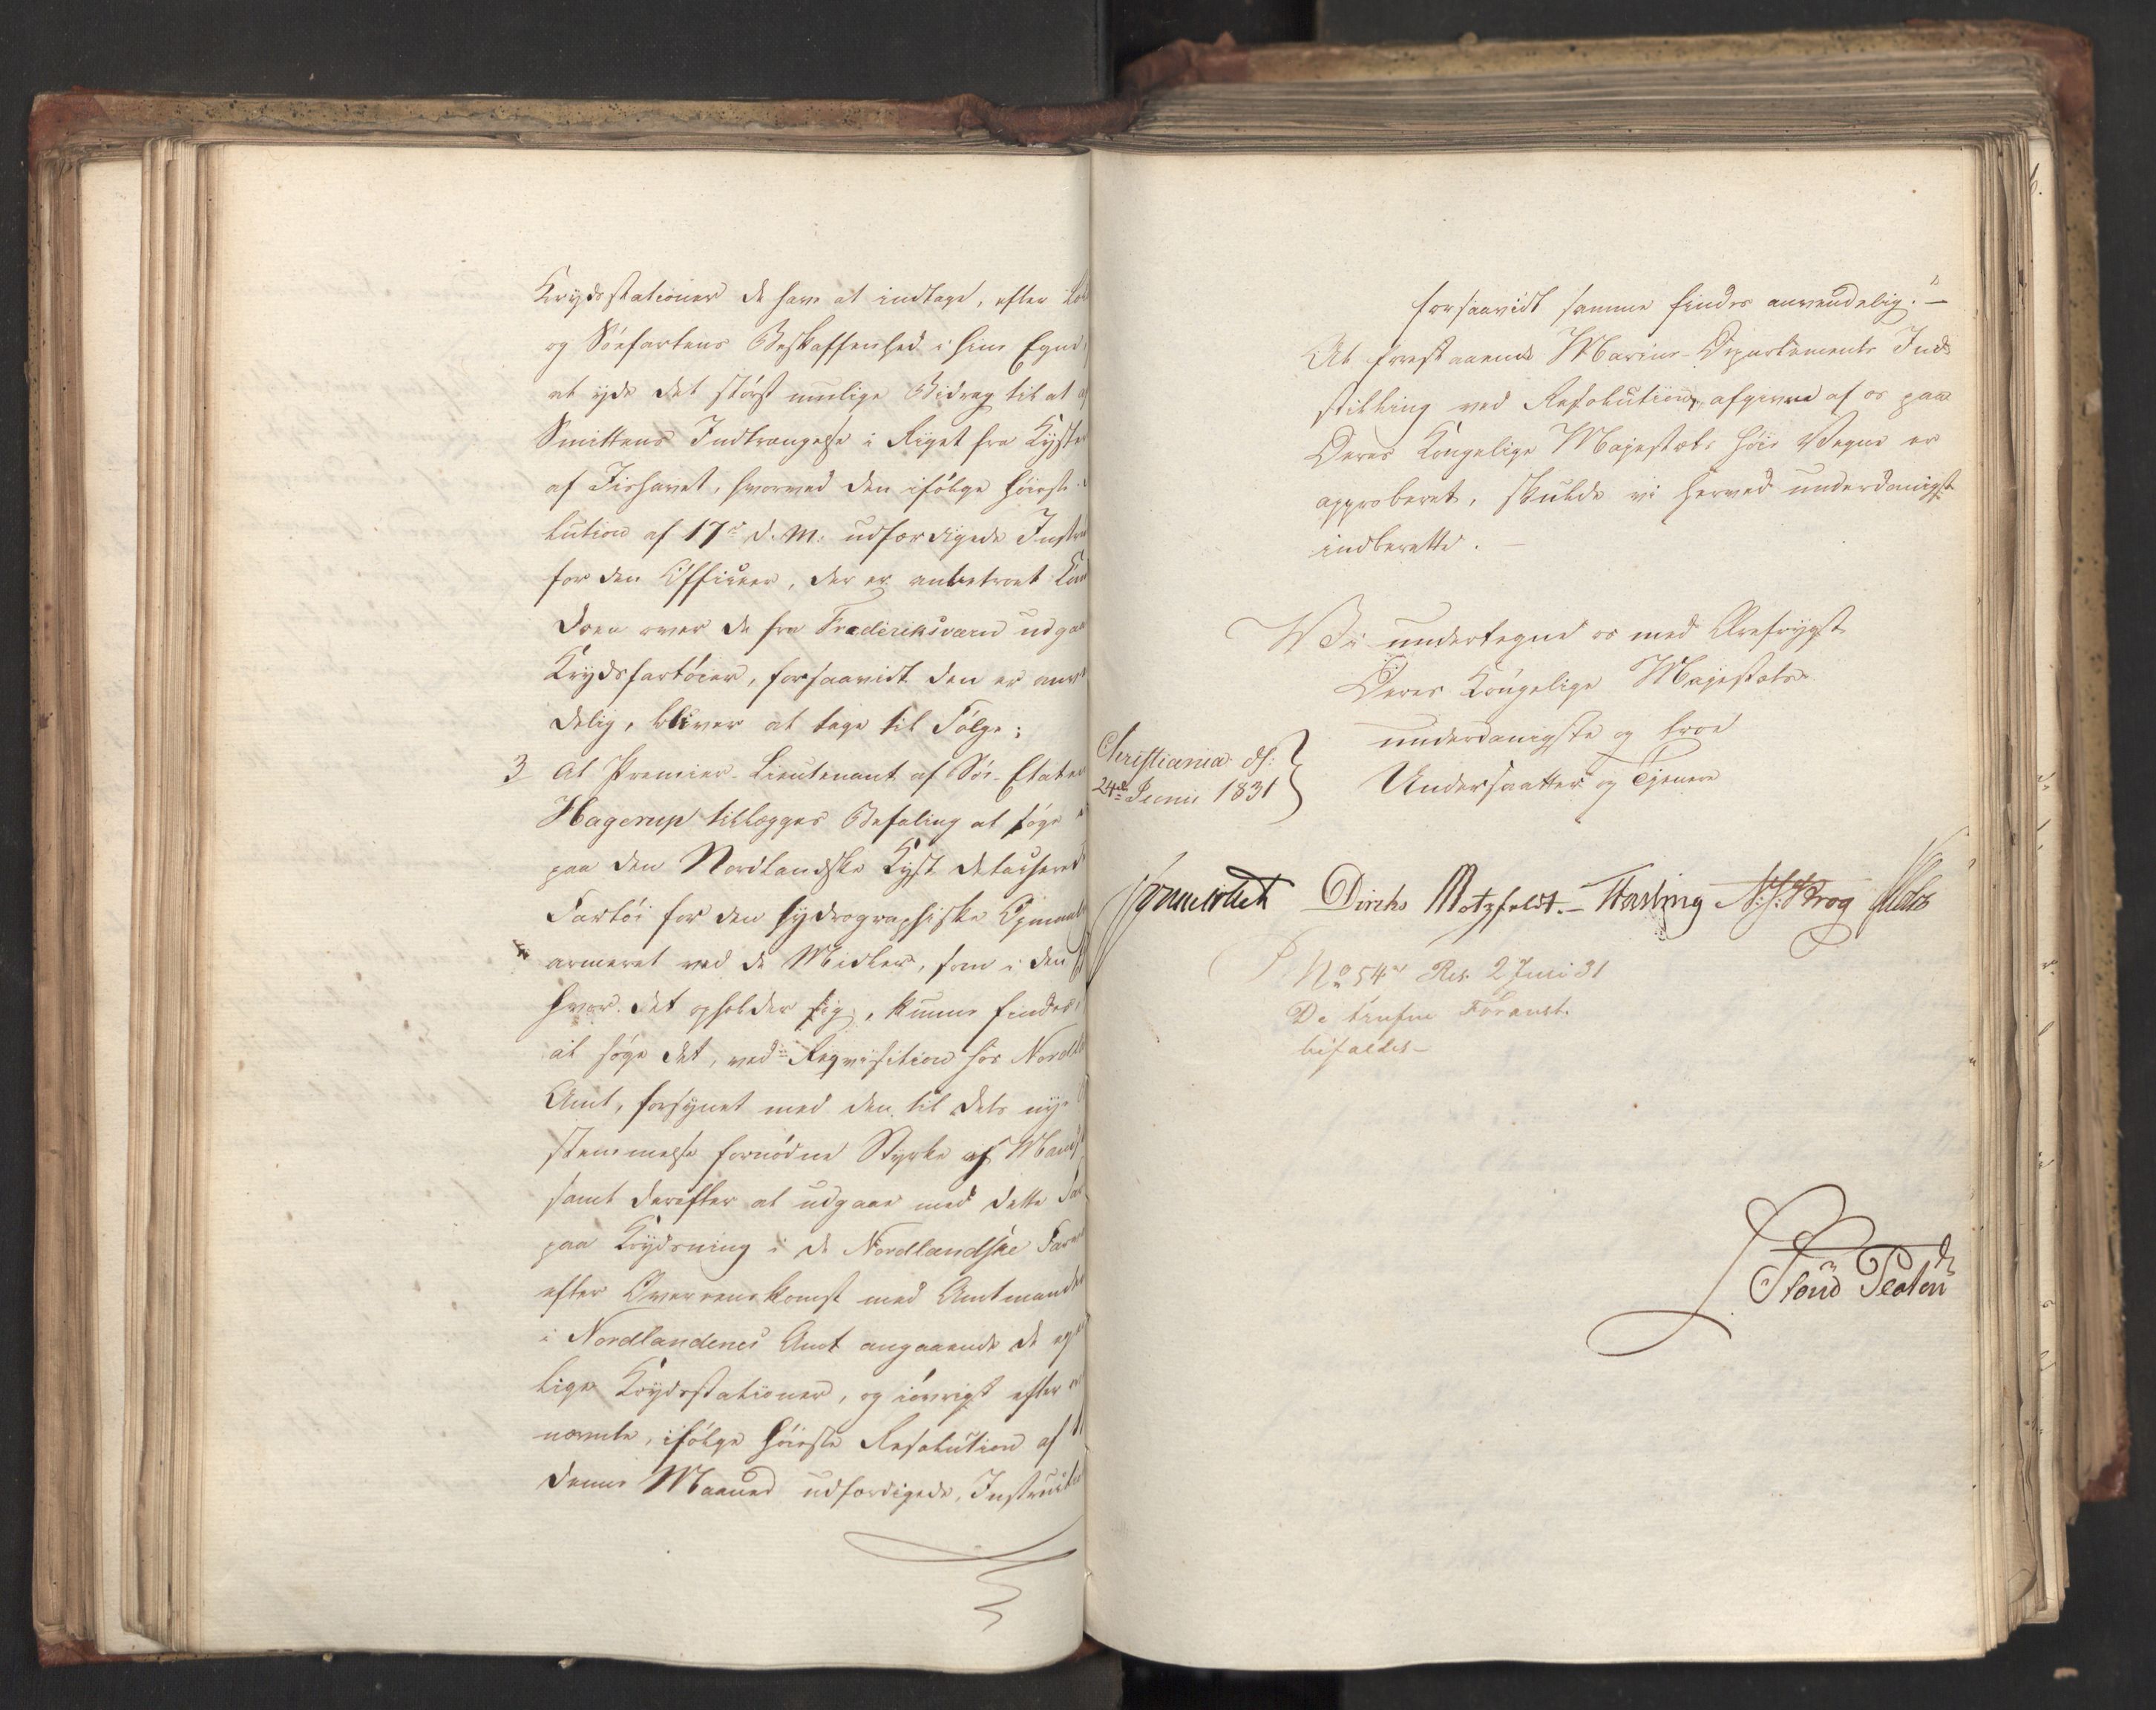 Krydsstationer de have at indtage, efter
og Søefartens Beskaffenhed i hine Egne,
at yde det størst mulige Bidrag til at
Smittens Indtrængelse i Riget fra Kyster
af Iishavet, hvorved den ifølge høieste
lution af 17de d. M. udfærdigede Instru
for den Officeer, der er anbetroet Com
doen over de fra Frederiksværn udgaa
Krydsfartøier, forsaavidt den er anv
delig, bliver at tage til Følge;
3 At Premier-Lieutenant af Søe-Etaten
Hagerup tillægges Befaling at søge
paa den Nordlandske Kyst detascherede
Fartøi for den hydrographiske Opmaal
armeret ved de Midler, som i den
hvor det opholder sig, kunne findes,
at søge det, ved Reqvisition hos Nordl
Amt, forsynet med den til dets nye
stemmelse fornødne Styrke af Mands
samt derefter at udgaae med dette Far
paa Krydsning i de Nordlandske Farv
efter Overeenskomst med Amtmanden
i Nordlandenes Amt angaaende de eg
lige Krydsstationer, og iøvrigt efter
nævnte, ifølge høieste Resolution af
denne Maaned udfærdigede, Instructio
forsaavidt samme findes anvendelig."—
At forestaaende Marine-Departements Ind
stilling ved Resolution, afgiven af os paa
Deres Kongelige Majestæts høie Vegne er
approberet, skulde vi herved underdanigst
indberette. —
Vi undertegne os med Ærefrygt
Deres Kongelige Majestæts
underdanigste og troe
Undersaatter og Tjenere
Christiania d:
24de Junii 1831
Sommerhielm Diriks Motzfeldt.— Fasting N: J: Krog Holst
No 54 Res. 2 Juli 31
De trufne Foranst.
bifaldes—
Flood Platou